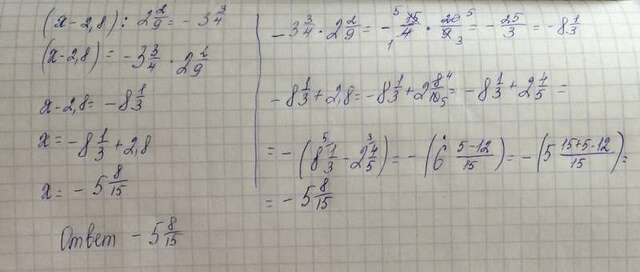 (x-2,8) : 2 2/9 = -3 3/4
(x-2,8) = -3 3/4 · 2 2/9
x-2,8 = -8 1/3
x = -8 1/3 + 2,8
x = -5 8/15
Ответ -5 8/15
-3 3/4 · 2 2/9 = - 15/4 · 20/9 = - 25/3 = -8 1/3
-8 1/3 + 2,8 = -8 1/3 + 2 8/10 = -8 1/3 + 2 4/5 =
= -(8 1/3 - 2 4/5) = -(6 5-12/15) = -(5 15+5-12/15) =
= -5 8/15